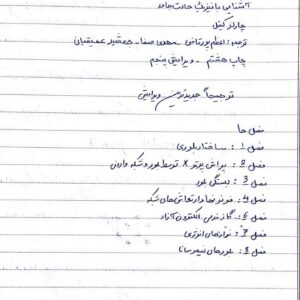 آشنایی با فیزیک حالت جامد
چارلز کیتل
ترجمه: اعظم پورقاضی - مهدی صفا - جمشید عمیقیان
چاپ هشتم - ویرایش پنجم
ترجیحاً جدیدترین ویرایش
فصل ها
فصل 1: ساختار بلوری
فصل 2: پراش پرتو X توسط بلور و شبکه وارون
فصل 3: بستگی بلور
فصل 4: فونونها و ارتعاش‌های شبکه
فصل 6: گاز فرمی الکترون آزاد
فصل 7: نوارهای انرژی
فصل 8: بلورهای نیمرسانا